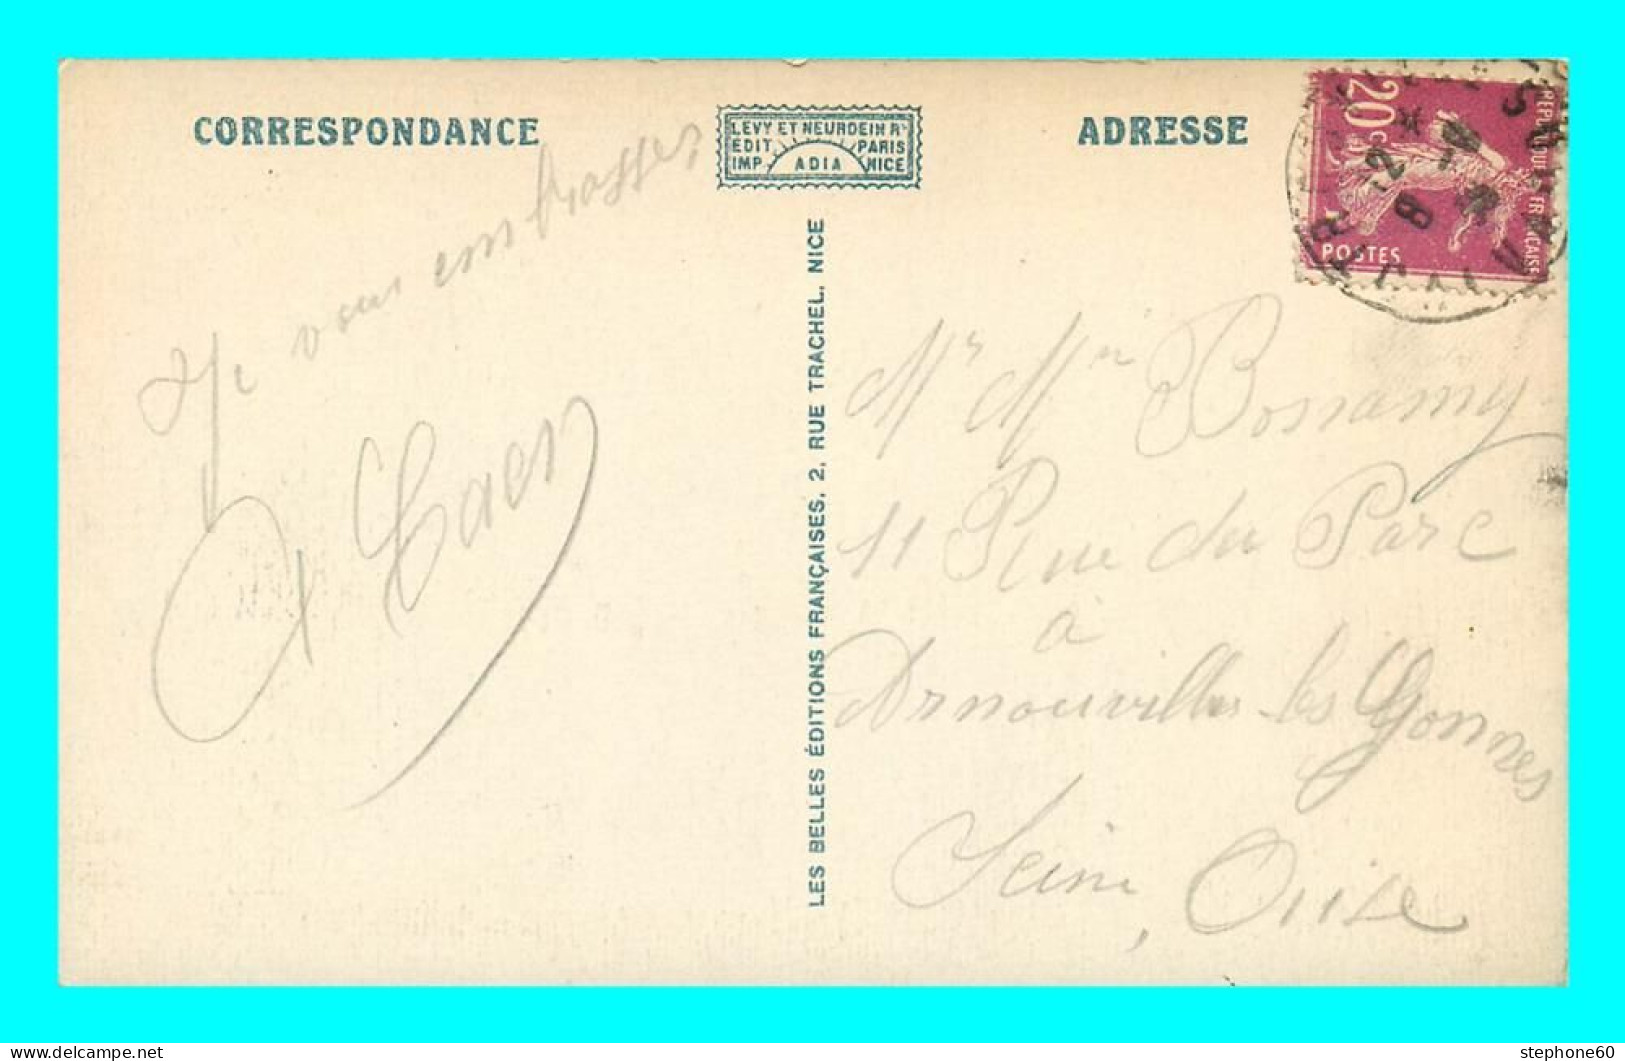 CORRESPONDANCE
LEVY ET NEURDEIN Rs
EDIT PARIS
IMP. ADIA NICE
ADRESSE
REPUBLIQUE FRANÇAISE
20c
POSTES
Je vous embrasse
LES BELLES ÉDITIONS FRANÇAISES, 2, RUE TRACHEL, NICE
Mr Mme Bonnamy
11 Rue du Parc
à
Arnouvilles les Gonnes
Seine, Oise
stephone60